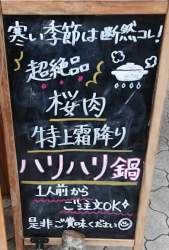 寒い季節は断然コレ!
超絶品
桜肉
特上霜降り
ハリハリ鍋
1人前から
ご注文OK
是非ご賞味ください